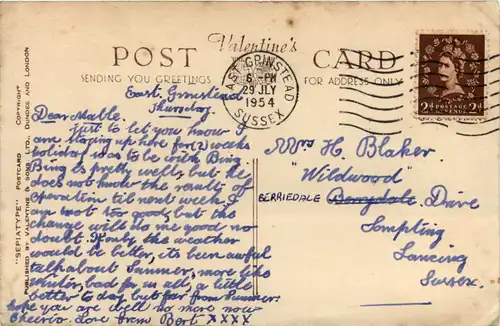 Valentine's
POST CARD
SENDING YOU GREETINGS
FOR ADDRESS ONLY
EAST GRINSTEAD
6 - PM
29 JLY
1954
SUSSEX
POSTAGE
2d 2d
"SEPIATYPE" POSTCARD COPYRIGHT
PUBLISHED BY VALENTINE & SONS LTD., DUNDEE AND LONDON
East Grinstead
Thursday
Dear Mable.
Just to let you know I
am staying up here for (2) weeks
holiday was to be with Bing
Bing is pretty well, but he
does not know the result of
operation til next week. I
am not too good but the
change will do me good no
doubt. If only the weather
would be better, its been awful
talk about Summer, more like
winter, bad for us all, a little
better to day but far from Summer.
hope you are well no more now
Cheerio. Love from Bert XXXX
Mrs H. Blaker.
"Wildwood"
BERRIEDALE Berrydale Drive
Sompting
Lancing
Sussex.